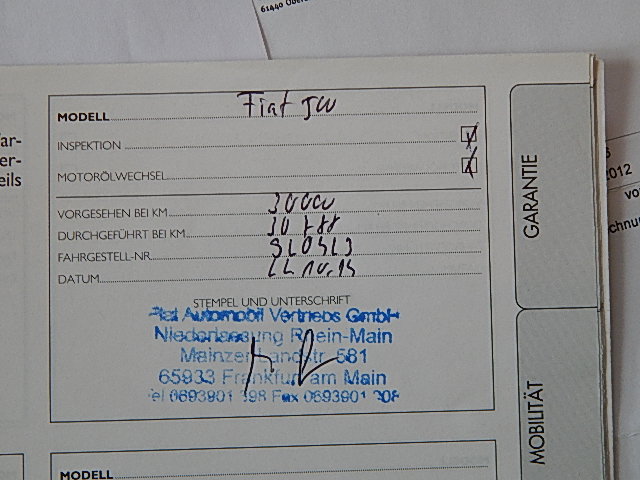 61440 Oberu
ar-
er-
eils
MODELL Fiat
INSPEKTION
MOTORÖLWECHSEL
VORGESEHEN BEI KM 30000
DURCHGEFÜHRT BEI KM
FAHRGESTELL-NR.
DATUM
STEMPEL UND UNTERSCHRIFT
Fiat Automobil Vertriebs GmbH
Niederlassung Rhein-Main
Mainzer Landstr. 581
65933 Frankfurt am Main
Tel 0693901 398 Fax 0693901 308
MODELL
GARANTIE
MOBILITÄT
2012
vo
chnun